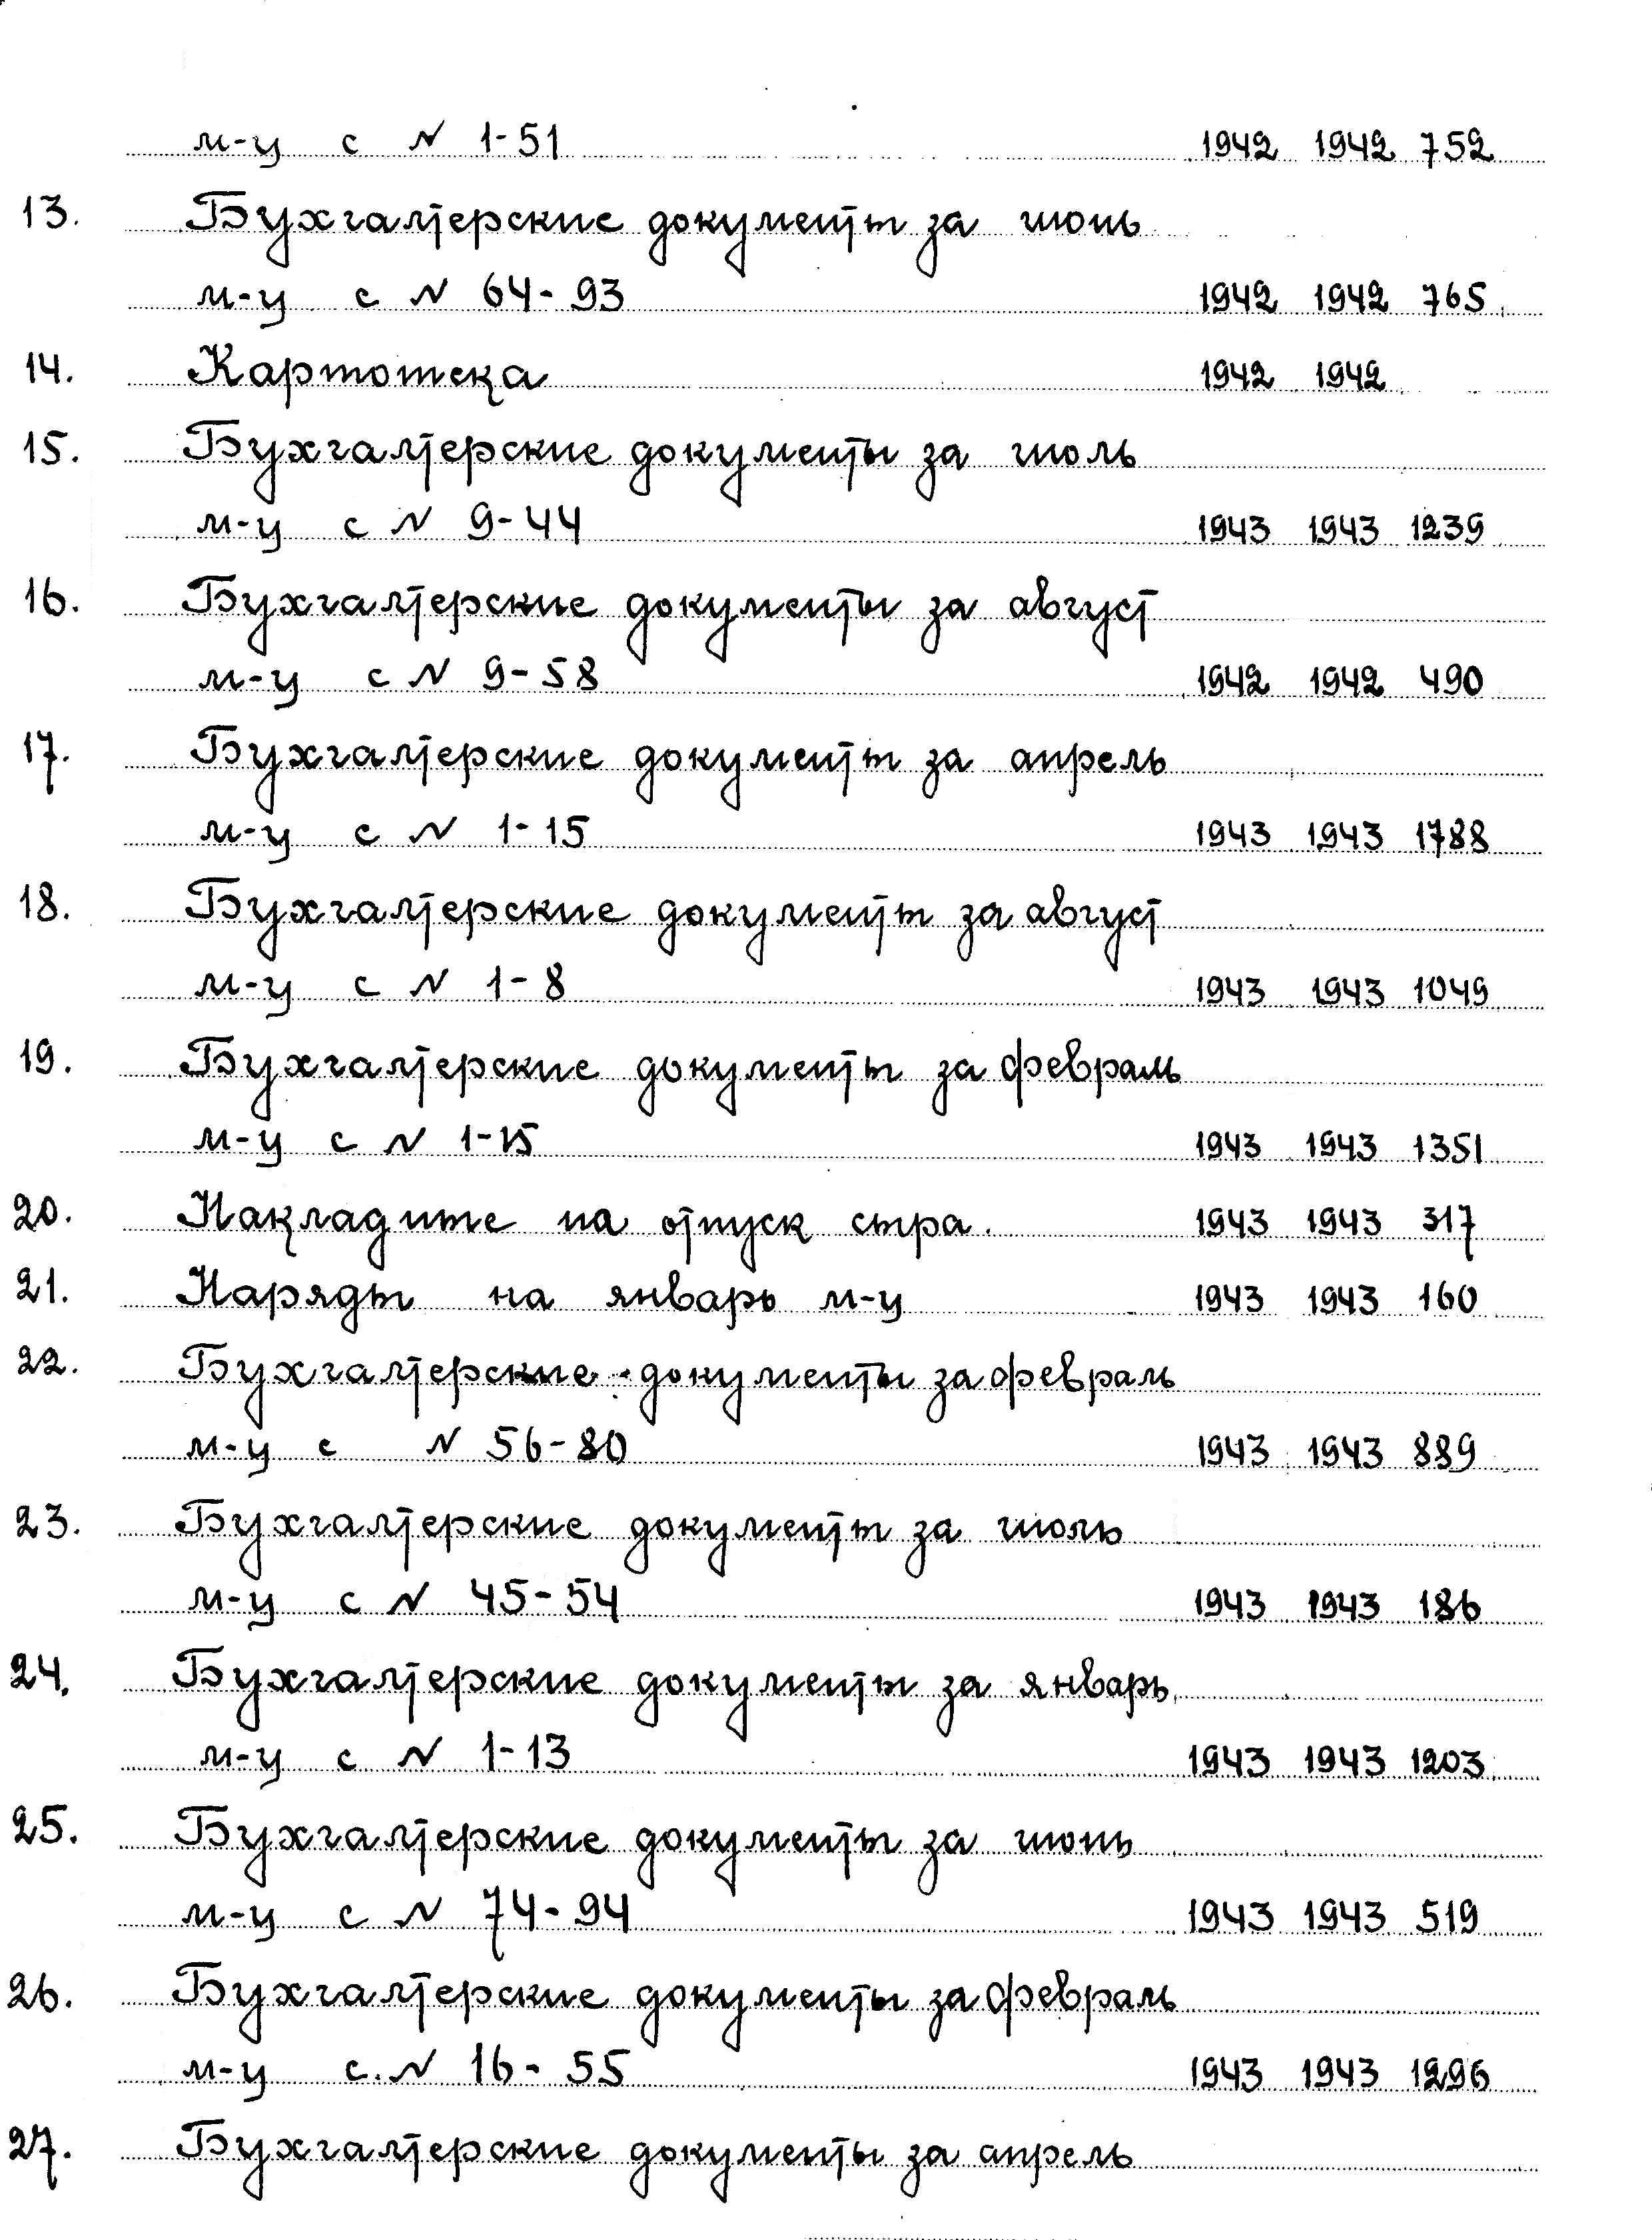 м-ц с N 1-51 1942 1942 752
13. Бухгалтерские документы за июнь
м-ц с N 64-93 1942 1942 765
14. Картотека 1942 1942
15. Бухгалтерские документы за июль
м-ц с N 9-44 1943 1943 1239
16. Бухгалтерские документы за август
м-ц с N 9-58 1942 1942 490
17. Бухгалтерские документы за апрель
м-ц с N 1-15 1943 1943 1788
18. Бухгалтерские документы за август
м-ц с N 1-8 1943 1943 1049
19. Бухгалтерские документы за февраль
м-ц с N 1-15 1943 1943 1351
20. Накладите на отпуск стра. 1943 1943 317
21. Наряды на январь м-ц 1943 1943 160
22. Бухгалтерские документы за февраль
м-ц с N 56-80 1943 1943 889
23. Бухгалтерские документы за июль
м-ц с N 45-54 1943 1943 186
24. Бухгалтерские документы за январь
м-ц с N 1-13 1943 1943 1203
25. Бухгалтерские документы за июнь
м-ц с N 74-94 1943 1943 519
26. Бухгалтерские документы за февраль
м-ц с. N 16-55 1943 1943 1296
27. Бухгалтерские документы за апрель